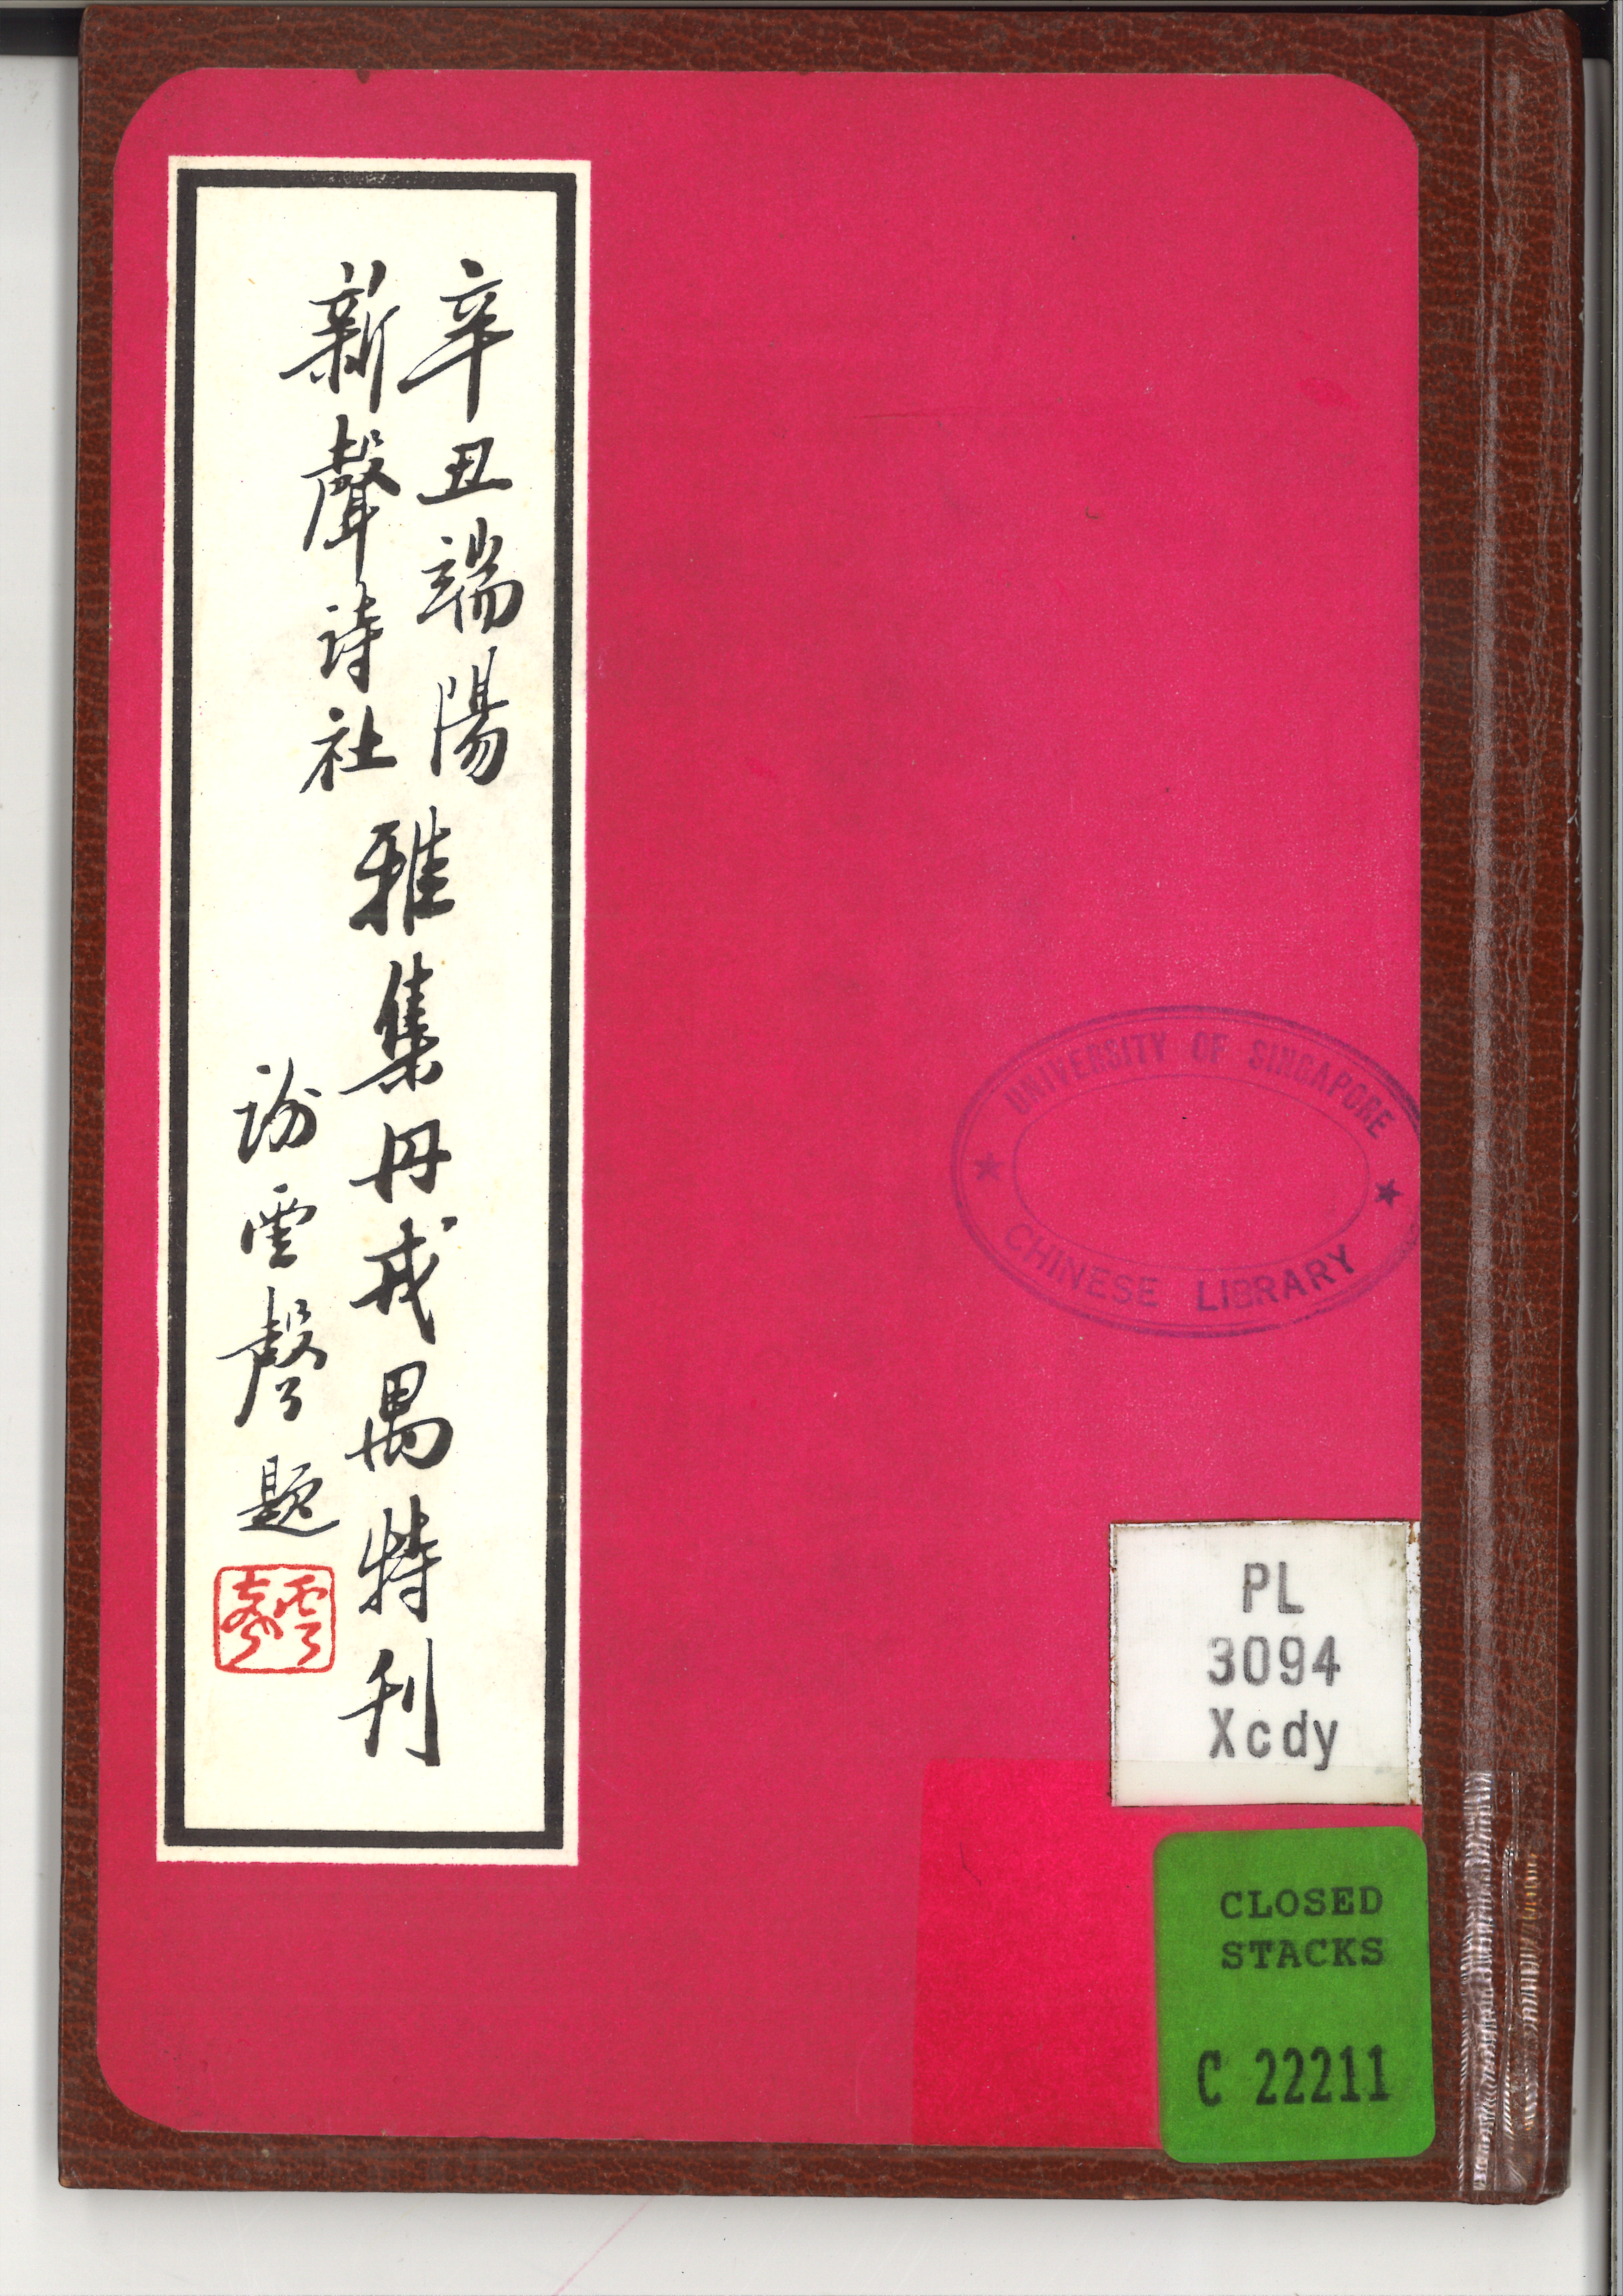 辛丑端陽
新聲詩社
雅集丹戎禺特刊
謝雲聲題
雲聲
UNIVERSITY OF SINGAPORE
CHINESE LIBRARY
PL
3094
Xcdy
CLOSED
STACKS
C 22211